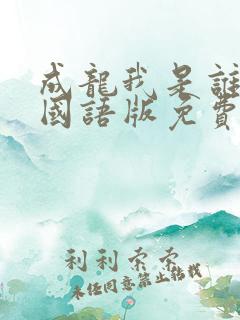 成龍我是誰
國語版免費
利利索索
未经同意禁止转载